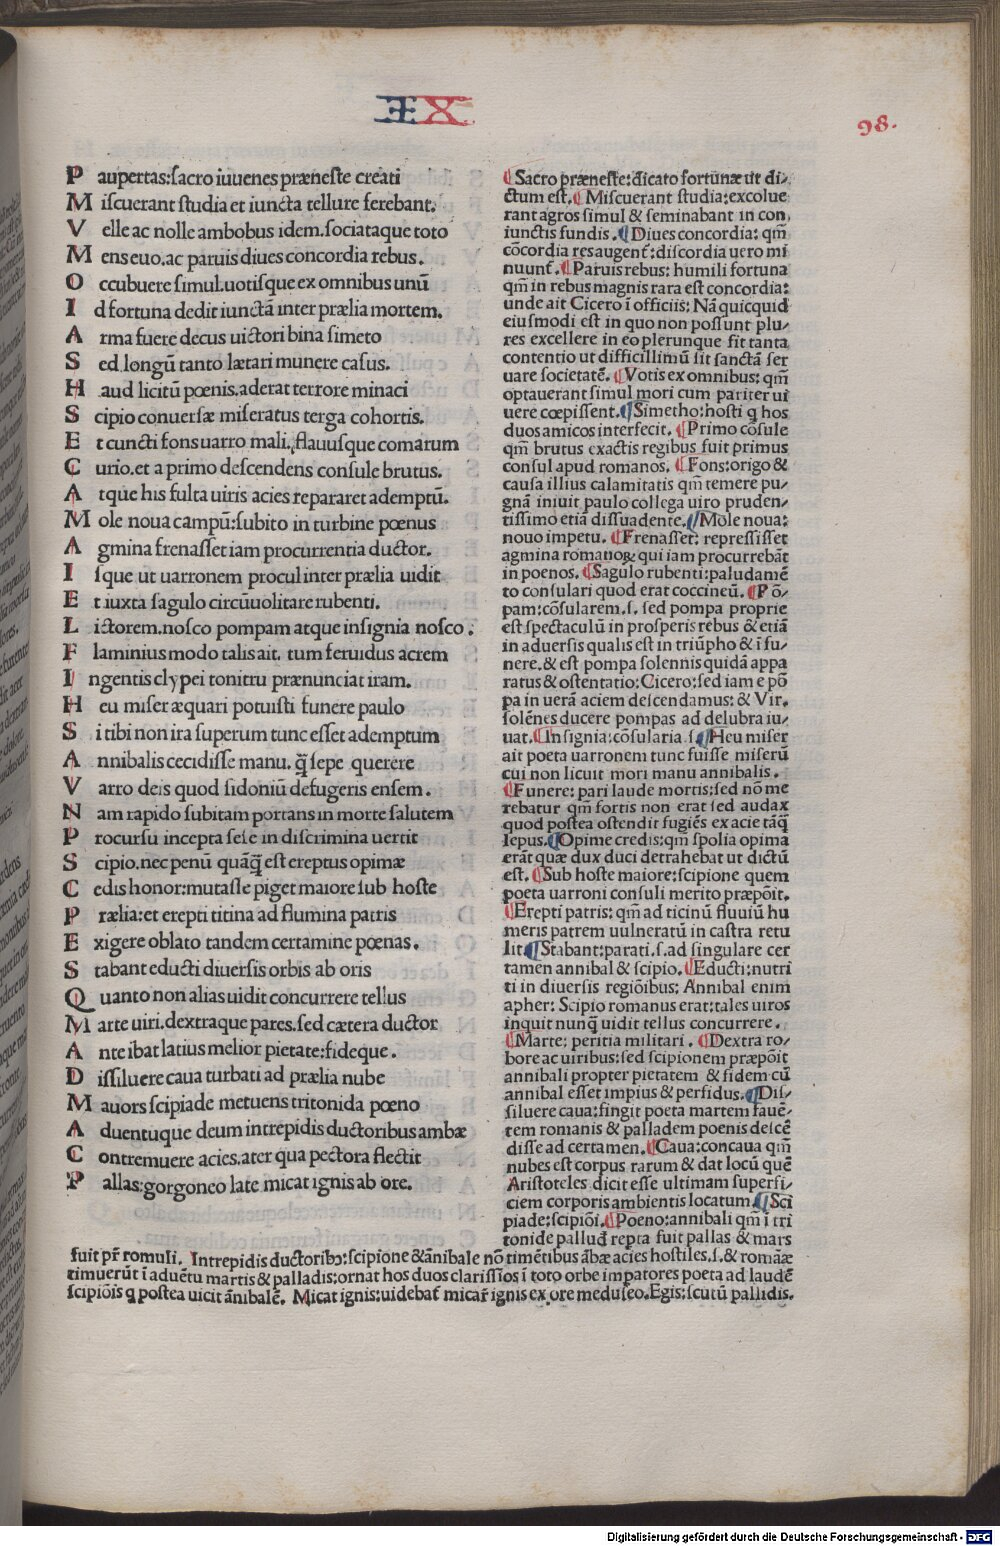 IX
98.
Paupertas:sacro iuuenes præneste creati
Miscuerant studia et iuncta tellure ferebant.
Velle ac nolle ambobus idem.sociataque toto
Mens euo.ac paruis diues concordia rebus.
Occubuere simul.uotisque ex omnibus unū
Id fortuna dedit iunctā inter prælia mortem.
Arma fuere decus uictori bina simeto
Sed longū tanto lætari munere casus.
Haud licitū pœnis.aderat terrore minaci
Scipio conuersæ miseratus terga cohortis.
Et cuncti fons uarro mali.flauusque comarum
Curio.et a primo descendens consule brutus.
Atque his fulta uiris acies repararet ademptū.
Mole noua campū:subito in turbine pœnus
Agmina frenasset iam procurrentia ductor.
Isque ut uarronem procul inter prælia uidit
Et iuxta sagulo circūuolitare rubenti.
Lictorem.nosco pompam atque insignia nosco.
Flaminius modo talis ait. tum feruidus acrem
Ingentis clypei tonitru prænunciat iram.
Heu miser æquari potuisti funere paulo
Si tibi non ira superum tunc esset ademptum
Annibalis cecidisse manu. q̄ sepe querere
Varro deis quod sidoniū defugeris ensem.
Nam rapido subitam portans in morte salutem
Procursu incepta sese in discrimina uertit
Scipio.nec penū quāq̄ est ereptus opimæ
Cedis honor:mutasse piget maiore sub hoste
Prælia:et erepti titina ad flumina patris
Exigere oblato tandem certamine pœnas.
Stabant educti diuersis orbis ab oris
Quanto non alias uidit concurrere tellus
Marte uiri.dextraque pares.sed cætera ductor
Ante ibat latius melior pietate:fideque.
Dissiluere caua turbati ad prælia nube
Mauors scipiade metuens tritonida pœno
Aduentuque deum intrepidis ductoribus ambæ
Contremuere acies.ater qua pectora flectit
Pallas:gorgoneo late micat ignis ab ore.
¶Sacro præneste:dicato fortunæ ut di/
ctum est.¶Miscuerant studia:excolue
rant agros simul & seminabant in con
iunctis fundis.¶Diues concordia: qm̄
cōcordia res augent̄:discordia uero mi
nuunt̄.¶Paruis rebus: humili fortuna
qm̄ in rebus magnis rara est concordia:
unde ait Cicero ī officiis: Nā quicquid
eiusmodi est in quo non possunt plu/
res excellere in eo plerunque fit tanta
contentio ut difficillimū sit sanctā ser
uare societatē. ¶Votis ex omnibus: qm̄
optauerant simul mori cum pariter ui
uere cœpissent.¶Simetho:hosti q hos
duos amicos interfecit.¶Primo cōsule
qm̄ brutus exactis regibus fuit primus
consul apud romanos.¶Fons:origo &
causa illius calamitatis qm̄ temere pu/
gnā iniuit paulo collega uiro pruden/
tissimo etiā dissuadente.¶Mole noua:
nouo impetu.¶Frenasset: repressisset
agmina romanoꝝ qui iam procurrebāt
in poenos.¶Sagulo rubenti:paludamē
to consulari quod erat coccineū.¶Pō/
pam:cōsularem.s. sed pompa proprie
est spectaculū in prosperis rebus & etiā
in aduersis qualis est in triūpho & ī fu/
nere.& est pompa solennis quidā appa
ratus & ostentatio:Cicero:sed iam e pō
pa in uerā aciem descendamus: & Vir.
solēnes ducere pompas ad delubra iu/
uat.¶Insignia:cōsularia.s.¶Heu miser
ait poeta uarronem tunc fuisse miserū
cui non licuit mori manu annibalis.
¶Funere: pari laude mortis:sed nō me
rebatur qm̄ fortis non erat sed audax
quod postea ostendit fugiēs ex acie tāq̄
lepus.¶Opime credis:qm̄ spolia opima
erāt quæ dux duci detrahebat ut dictū
est.¶Sub hoste maiore:scipione quem
poeta uarroni consuli merito præpōit.
¶Erepti patris: qm̄ ad ticinū fluuiū hu
meris patrem uulneratū in castra retu
lit.¶Stabant:parati.s.ad singulare cer
tamen annibal & scipio.¶Educti:nutri
ti in diuersis regiōibus: Annibal enim
apher: Scipio romanus erat:tales uiros
inquit nunq̄ uidit tellus concurrere.
¶Marte: peritia militari.¶Dextra ro/
bore ac uiribus:sed scipionem præpōit
annibali propter pietatem & fidem cū
annibal esset impius & perfidus.¶Dis/
siluere caua:fingit poeta martem fauē/
tem romanis & palladem poenis descē
disse ad certamen.¶Caua:concaua qm̄
nubes est corpus rarum & dat locū quē
Aristoteles dicit esse ultimam superfi/
ciem corporis ambientis locatum.¶Sci
piade:scipiōi.¶Poeno:annibali qm̄ ī tri
tonide pallud repta fuit pallas & mars
fuit pr̄ romuli. Intrepidis ductoribꝫ:scipione &ānibale nō timētibus ābæ acies hostiles.s.& romāæ
timuerūt ī aduētu martis & palladis:ornat hos duos clarissīos ī toto orbe impatores poeta ad laudē
scipiōis q postea uicit ānibalē. Micat ignis:uidebat̄ micar̄ ignis ex ore meduseo.Egis:scutū pallidis.
Digitalisierung gefördert durch die Deutsche Forschungsgemeinschaft - DFG